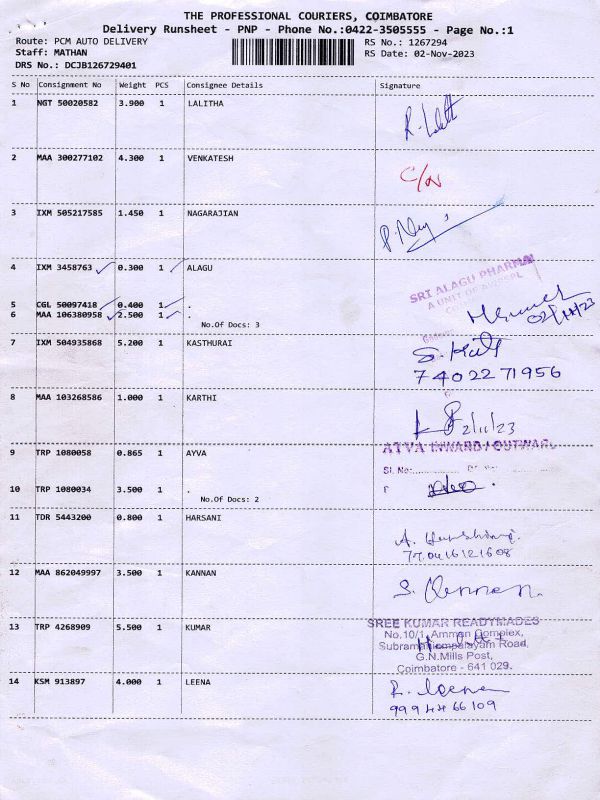 THE PROFESSIONAL COURIERS, COIMBATORE
Delivery Runsheet - PNP - Phone No.:0422-3505555 - Page No.:1
Route: PCM AUTO DELIVERY RS No.: 1267294
Staff: MATHAN RS Date: 02-Nov-2023
DRS No.: DCJB126729401
S No Consignment No Weight PCS Consignee Details Signature
1 NGT 50020582 3.900 1 LALITHA
2 MAA 300277102 4.300 1 VENKATESH C/N
3 IXM 505217585 1.450 1 NAGARAJIAN
4 IXM 3458763 0.300 1 ALAGU
SRI ALAGU PHARMA
A UNIT OF
5 CGL 50097418 0.400 1 .
6 MAA 106380958 2.500 1 . 02/11/23
No.Of Docs: 3
7 IXM 504935868 5.200 1 KASTHURAI
7402271956
8 MAA 103268586 1.000 1 KARTHI
2/11/23
9 TRP 1080058 0.865 1 AYVA
INWARD / OUTWARD
Sl. No:
10 TRP 1080034 3.500 1 .
No.Of Docs: 2
11 TDR 5443200 0.800 1 HARSANI
12 MAA 862049997 3.500 1 KANNAN
13 TRP 4268909 5.500 1 KUMAR
SREE KUMAR READYMADES
No.10/1, Amman Complex,
Subramaniampalayam Road,
G.N.Mills Post,
Coimbatore - 641 029.
14 KSM 913897 4.000 1 LEENA
R. Leena
9994466109